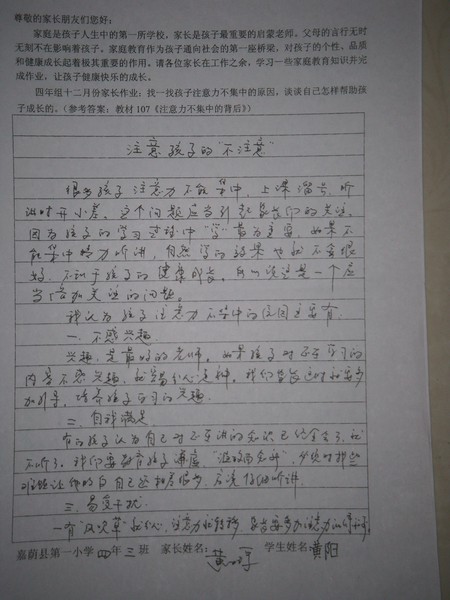 尊敬的家长朋友们您好：
家庭是孩子人生中的第一所学校，家长是孩子最重要的启蒙老师。父母的言行无时
无刻不在影响着孩子。家庭教育作为孩子通向社会的第一座桥梁，对孩子的个性、品质
和健康成长起着极其重要的作用。请各位家长在工作之余，学习一些家庭教育知识并完
成作业，让孩子健康快乐的成长。
四年组十二月份家长作业：找一找孩子注意力不集中的原因，谈谈自己怎样帮助孩
子成长的。（参考答案：教材107《注意力不集中的背后》）
注意孩子的"不注意"
很多孩子注意力不能集中，上课溜号，听
讲时开小差。这个问题应当引起家长们的关注。
因为孩子的学习过程中"学"最为主要，如果不
能集中精力听讲，自然学的效果也就不会很
好，不利于孩子的健康成长。所以说这是一个应
当倍加关注的问题。
我认为孩子注意力不集中的原因主要有
一、不感兴趣
兴趣是最好的老师。如果孩子对正在学习的
内容不感兴趣，就容易分心走神。我们家长这时就要多
加引导，培养孩子学习的兴趣
二、自我满足
有的孩子认为自己对正在讲的知识已经会了，就
不听了。我们要教育孩子谦虚
难题让他明白自己还相差很多，应该仔细听讲
三、易受干扰
一有"风吹草"就分心，注意力就转移
嘉荫县第一小学 四年 三 班 家长姓名： 黄 学生姓名 黄阳